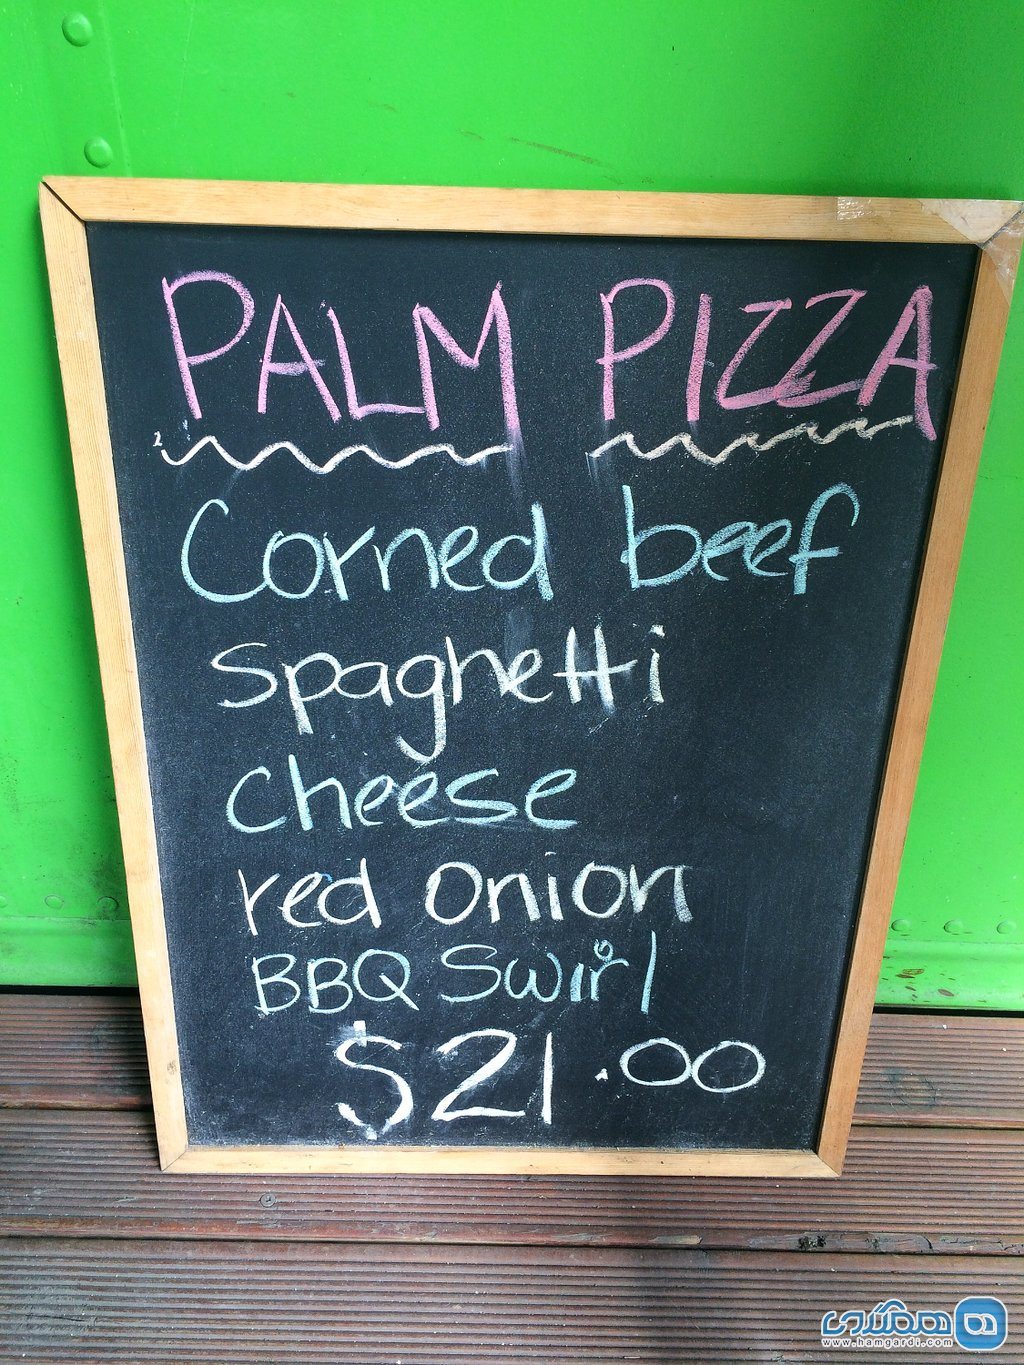 PALM PIZZA
Corned beef
spaghetti
cheese
red onion
BBQ Swirl
$21.00
همگردی
www.hamgardi.com